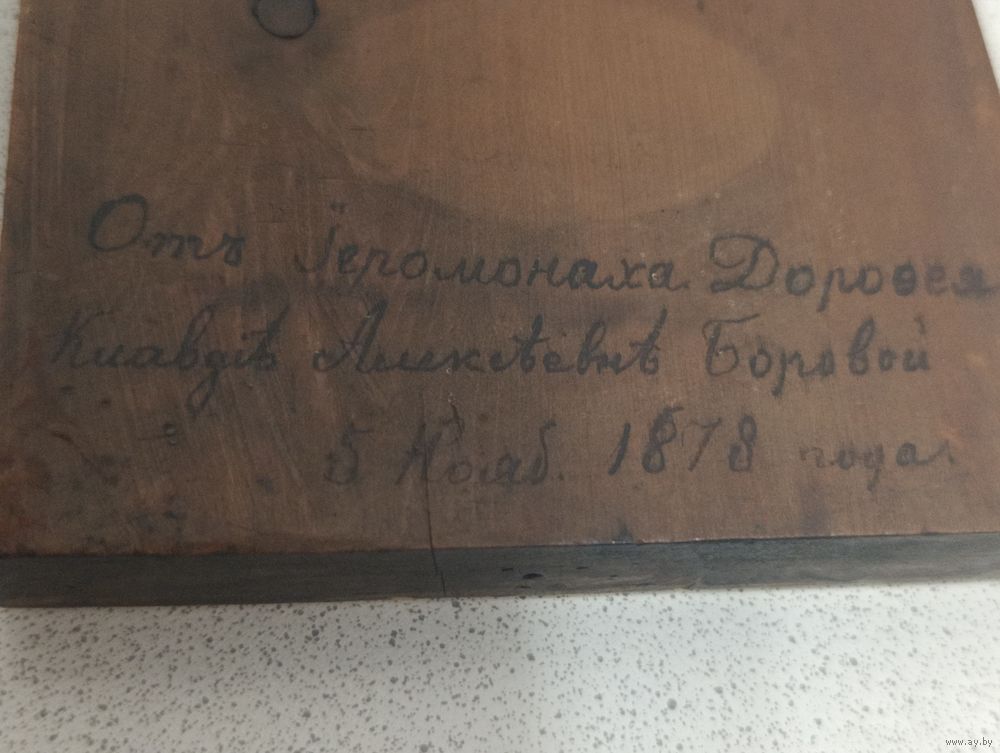 Отъ Іеромонаха Дороѳея
Клавдіѣ Алексѣевнѣ Боровой
5 Нояб. 1878 года.
www.ay.by